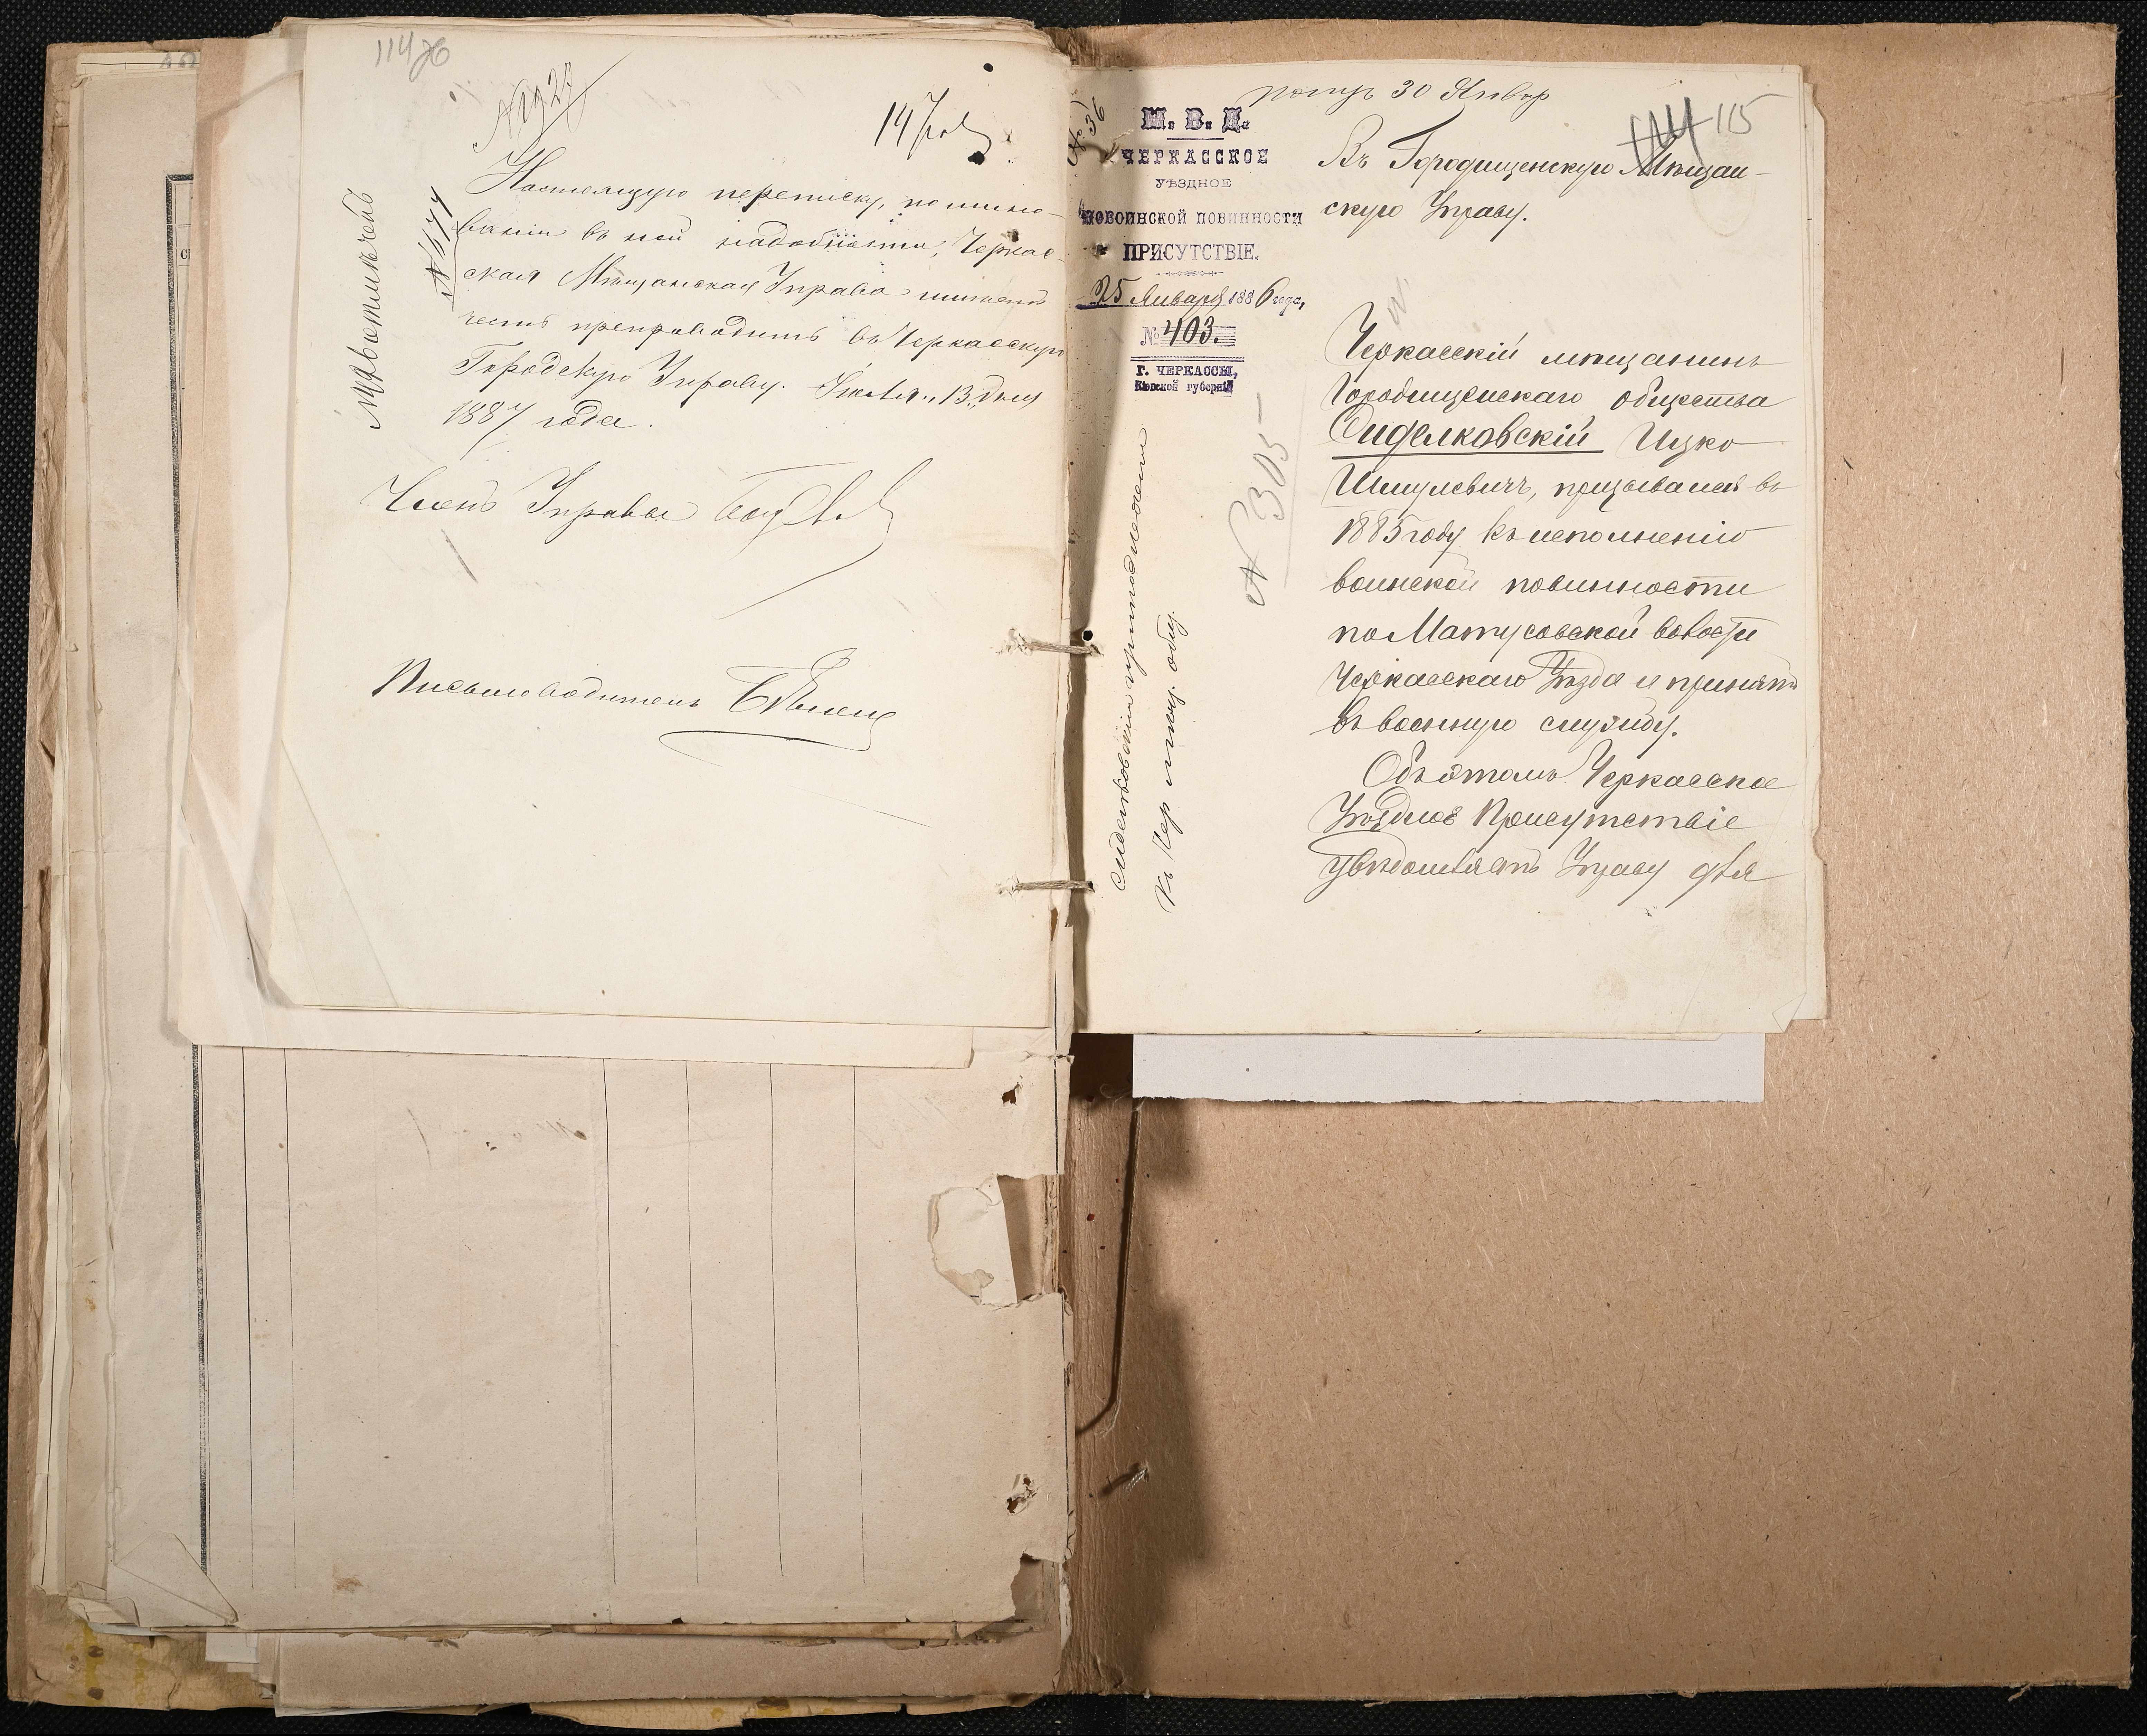 114
№ 1474
Настоящую переписку, по мино-
ваніи въ ней надобности, Черкас-
ская Мѣщанская Управа имѣетъ
честь препроводить въ Черкасскую
Городскую Управу. Іюля „13„ дня
1887 года.
Членъ Управы
Письмоводитель
№ 36
получ 30 Январ
115
М. В. Д.
ЧЕРКАССКОЕ
УѢЗДНОЕ
ПО ВОИНСКОЙ ПОВИННОСТИ
ПРИСУТСТВІЕ.
25 Января 1886 года,
№ 403.
Г. ЧЕРКАССЫ,
Кіевской губерніи
№ 305
Сиделковскій
къ Чер мѣщ. общ.
Въ Городищенскую Мѣщан-
скую Управу.
Черкасскій мѣщанинъ
Городищенскаго общества
Сиделковскій Ицко
Шмулевичъ, призывался въ
1885 году къ исполненію
воинской повинности
по Матусовской волости
Черкасскаго Уѣзда и принятъ
въ военную службу.
Объ этомъ Черкасское
Уѣздное Присутствіе
увѣдомляетъ Управу для